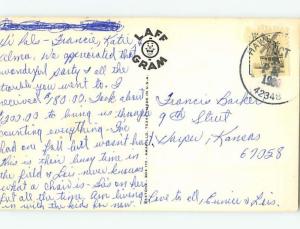 Hi Pals - Francis, Katie
Alma. We appreciated that
wonderful party & all the
trouble you went to. I
received $780.00. Took about
$200.00 to bring us through
counting everything - I've
had one fall but wasn't hurt
this is their busy time in
the field & Lois never knows
what a chair is - She's on her
feet all the time. Am living
in with the kids for now.
LAFF
GRAM
Francis Barker
9th Street
Harper, Kansas
67058
Love to all, Eunice & Lois